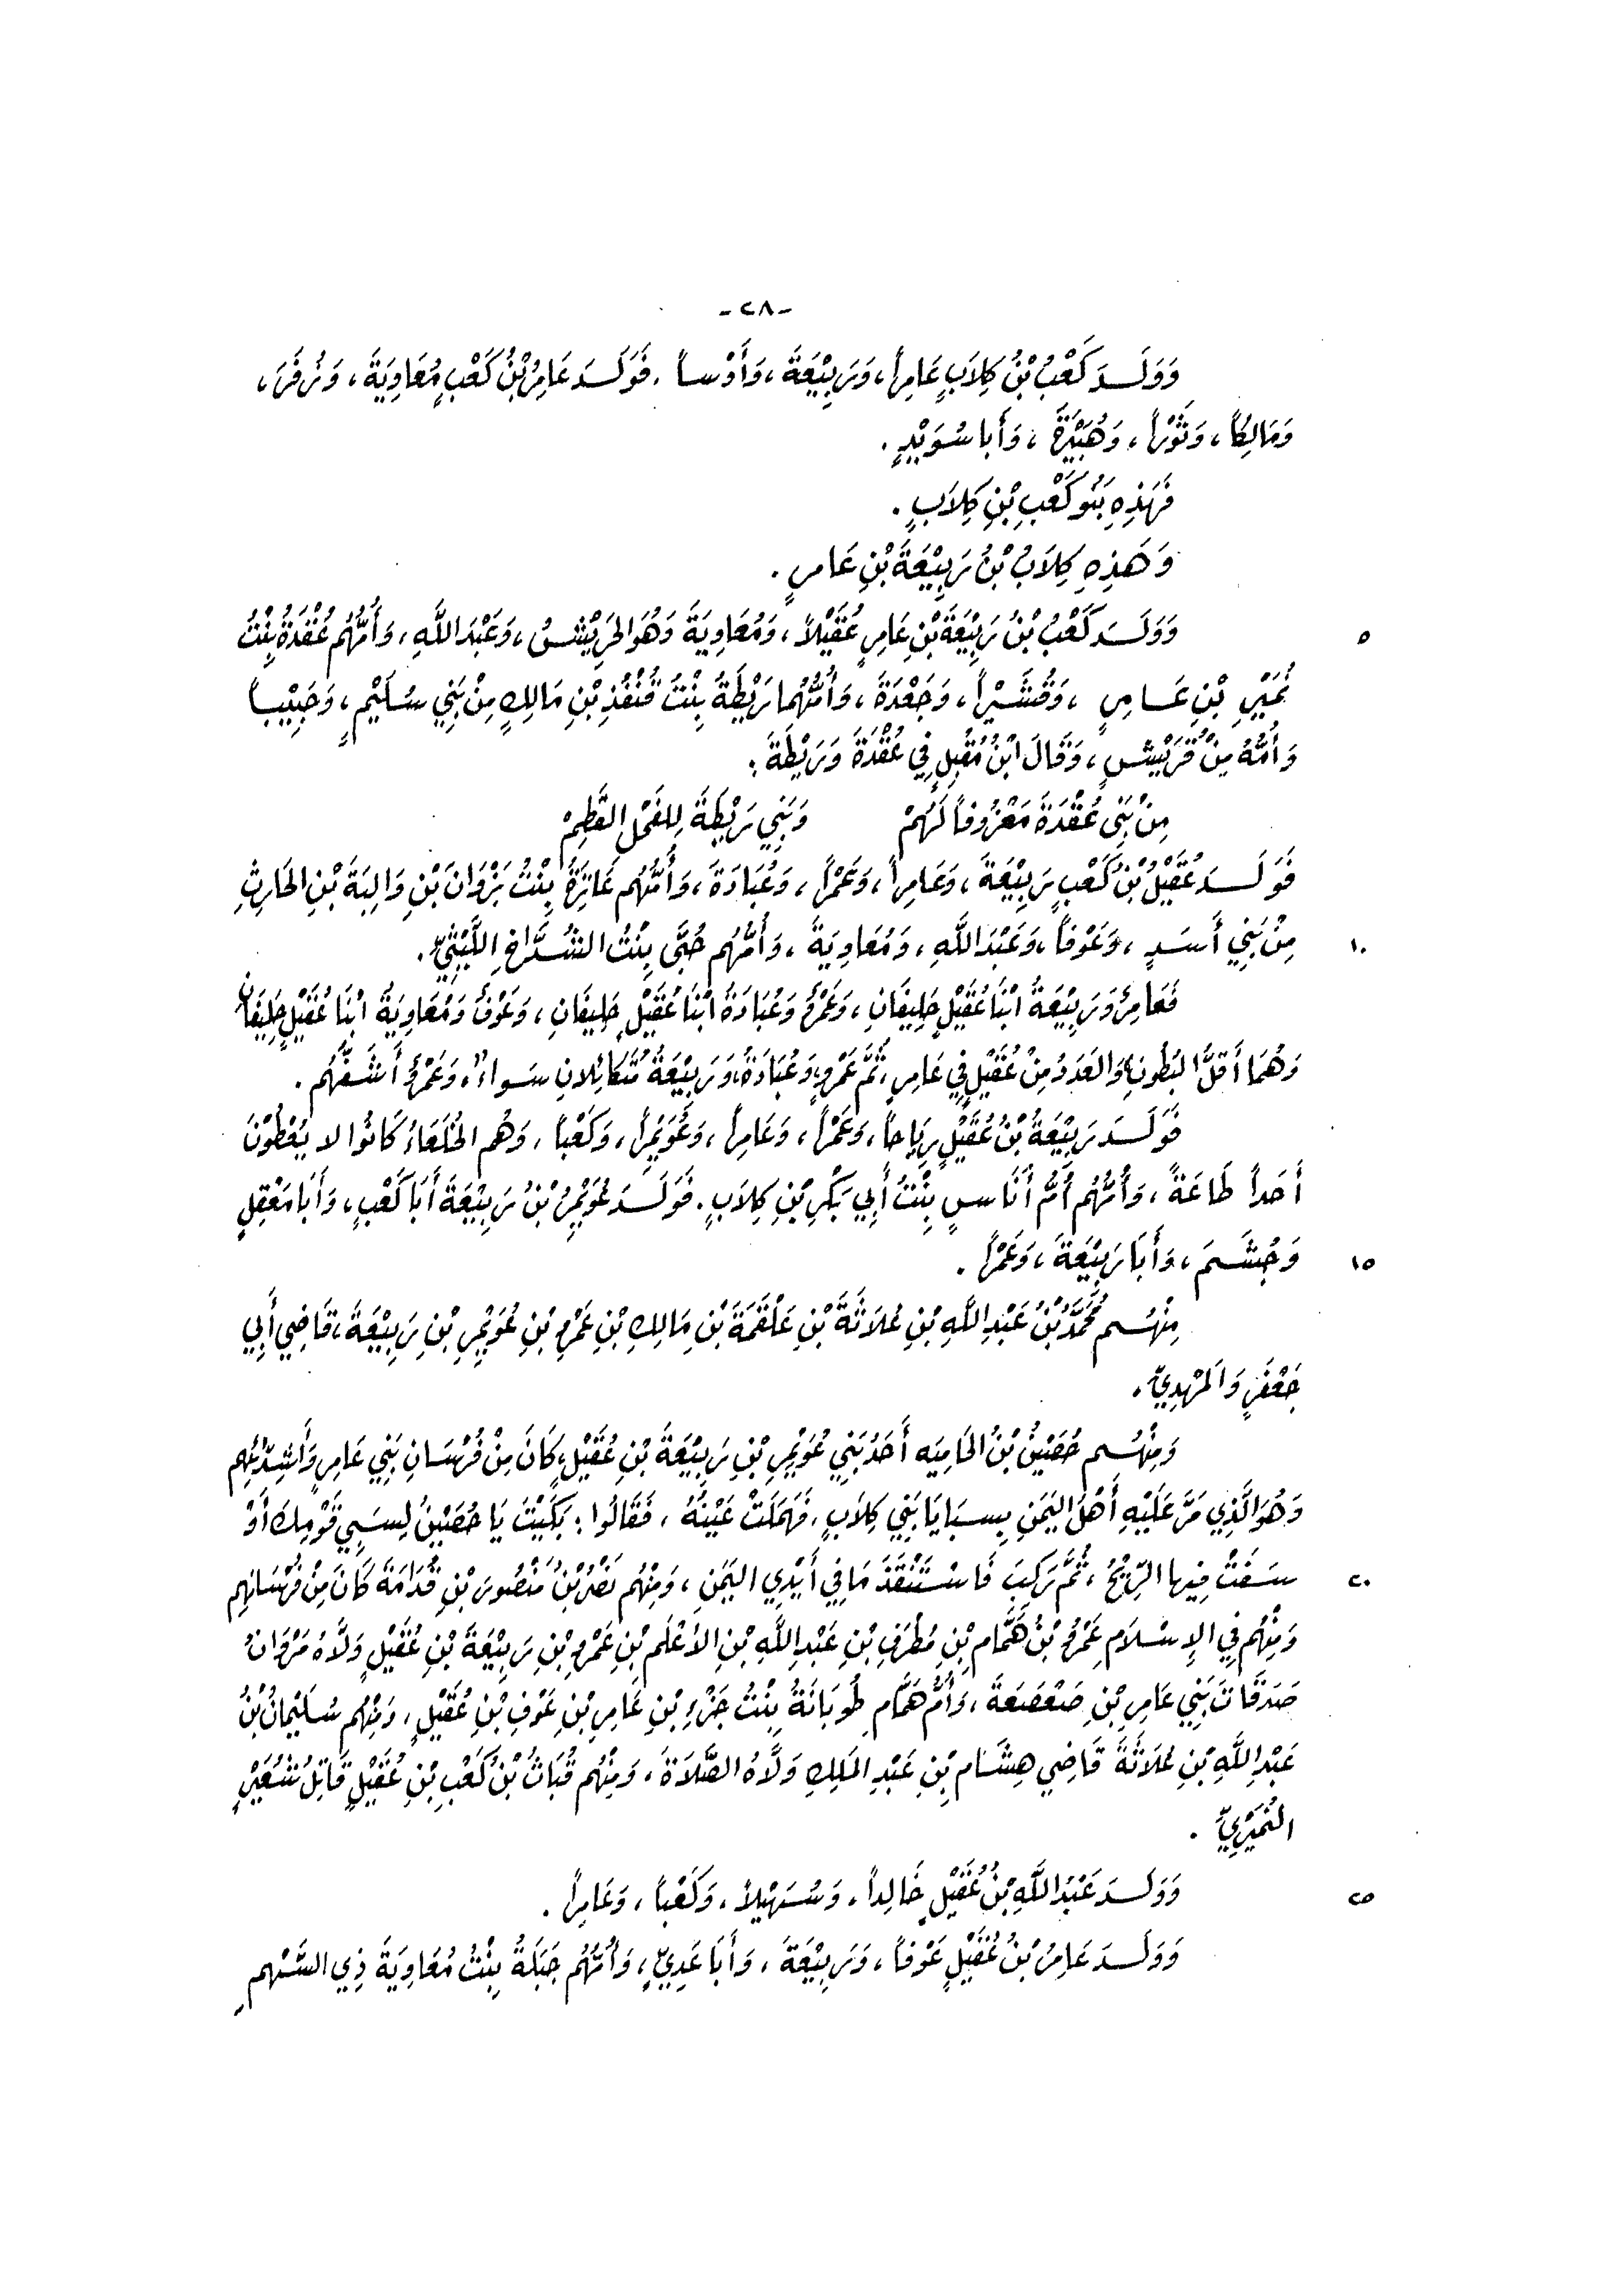 -٢٨-
وَوَلَدَ كَعْبُ بْنُ كِلَابٍ عَامِراً، وَرَبِيْعَةَ، وَأَوْساً. فَوَلَدَ عَامِرُ بْنُ كَعْبٍ مُعَاوِيَةَ، وَزُفَرَ،
وَمَالِكاً، وَثَوْراً، وَهُبَيْرَةَ، وَأَبا سُوَيْدٍ.
فَهَذِهِ بَنُو كَعْبِ بْنِ كِلَابٍ.
وَهَذِهِ كِلَابُ بْنُ رَبِيْعَةَ بْنِ عَامرٍ.
٥ وَوَلَدَ كَعْبُ بْنُ رَبِيْعَةَ بْنِ عَامِرٍ عُقَيْلاً، وَمُعَاوِيَةَ وَهُوَ الحَرِيْشُ، وَعَبْدَ اللَّهِ، وَأُمُّهُم عُقْدَةُ بِنْتُ
نُمَيْرِ بْنِ عَامِرٍ، وَقُشَيْراً، وَجَعْدَةَ، وَأُمُّهُما رَيْطَةُ بِنْتُ قُنْفُذِ بْنِ مَالِكٍ مِنْ بَنِي سُلَيْمٍ، وَحَبِيْباً
وَأُمُّهُ مِنْ قُرَيْشٍ، وَقَالَ ابْنُ مُقْبِلٍ فِي عُقْدَةَ وَرَيْطَةَ:
مِنْ بَنِي عُقْدَةَ مَعْرُوفاً لَهُمْ وَبَنِي رَيْطَةَ لِلفَحْلِ القَطِمْ
فَوَلَدَ عُقَيْلُ بْنُ كَعْبٍ رَبِيْعَةَ، وَعَامِراً، وَعَمْراً، وَعُبَادَةَ، وَأُمُّهُم عَاتِرَةُ بِنْتُ بَزْوَانَ بْنِ وَالِبَةَ بْنِ الحَارِثِ
١٠ مِنْ بَنِي أَسَدٍ، وَعَوْفاً، وَعَبْدَ اللَّهِ، وَمُعَاوِيَةَ، وَأُمُّهُم حُبَّى بِنْتُ الشُدَّاخِ اللَّيْثِيِّ.
فَعَامِرٌ وَرَبِيْعَةُ ابْنَا عُقَيْلٍ حَلِيفَانِ، وَعَمْرٌو وَعُبَادَةُ ابْنَا عُقَيْلٍ حَلِيفَانِ، وَعَوْفٌ وَمُعَاوِيَةُ ابْنَا عُقَيْلٍ حَلِيفَانِ
وَهُمَا أَقَلُّ البُطُونِ، وَالعَدَدُ مِنْ عُقَيْلٍ فِي عَامِرٍ، ثُمَّ عَمْرٍو، وَعُبَادَةُ، وَرَبِيْعَةُ مُتَكَايِلانِ سَواءٌ، وَعَمْرٌو أَشَفُّهُم.
فَوَلَدَ رَبِيْعَةُ بْنُ عُقَيْلٍ رِيَاحاً، وَعَمْراً، وَعَامِراً، وَعُوَيْمِراً، وَكَعْباً، وَهُم الخُلَعَاءُ كَانُوا لا يُعْطُوْنَ
أَحَداً طَاعَةً، وَأُمُّهُم أُمُّ أُنَاسٍ بِنْتُ أَبِي بَكْرِ بْنِ كِلَابٍ. فَوَلَدَ عُوَيْمِرُ بْنُ رَبِيْعَةَ أَبَا كَعْبٍ، وَأَبَا مَعْقِلٍ
١٥ وَجُشَمَ، وَأَبَا رَبِيْعَةَ، وَعَمْراً.
مِنْهُم مُحَمَّدُ بْنُ عَبْدِ اللَّهِ بْنِ عُلَاثَةَ بْنِ عَلْقَمَةَ بْنِ مَالِكِ بْنِ عَمْرِو بْنِ عُوَيْمِرِ بْنِ رَبِيْعَةَ، قَاضِي أَبِي
جَعْفَرٍ وَالمَهْدِيِّ.
وَمِنْهُم حُصَيْنُ بْنُ الحَامِيَه أَحَدُ بَنِي عُوَيْمِرِ بْنِ رَبِيْعَةَ بْنِ عُقَيْلٍ، كَانَ مِنْ فُرْسَانِ بَنِي عَامِرٍ وَأَشِدَّائِهِم
وَهُوَ الَّذِي مَرَّ عَلَيْهِ أَهْلُ اليَمَنِ بِسبَايَا بَنِي كِلَابٍ، فَهَمَلَتْ عَيْنُهُ، فَقَالُوا: بَكَيْتَ يَا حُصَيْنُ لِسَبِي قَوْمِكَ أَوْ
٢٠ سَفَتْ فِيها الرِّيْحُ، ثُمَّ رَكِبَ فَاسْتَنْقَذَ مَا فِي أَيْدِي اليَمَنِ، وَمِنْهُم نَصْرُ بْنُ مَنْصُورِ بْنِ قُدَامَةَ كَانَ مِنْ فُرْسَانِهِم
وَمِنْهُم فِي الإِسْلَامِ عَمْرُو بْنُ هَمَّامِ بْنِ مُطَرَفِ بْنِ عَبْدِ اللَّهِ بْنِ الأَعْلَمِ بْنِ عَمْرِو بْنِ رَبِيْعَةَ بْنِ عُقَيْلٍ وَلَّاهُ مَرْوَانُ
صَدَقَاتَ بَنِي عَامِرِ بْنِ صَعْصَعَةَ، وَأُمُّ هَمَّامٍ طُوبَانَةُ بِنْتُ جَزْءِ بْنِ عَامِرِ بْنِ عَوْفِ بْنِ عُقَيْلٍ، وَمِنْهُم سُلَيْمانُ بْنُ
عَبْدِ اللَّهِ بْنِ عُلَاثَةَ قَاضِي هِشَامِ بْنِ عَبْدِ المَلِكِ وَلَّاهُ الصَّلَاةَ، وَمِنْهُم قُبَاثُ بْنُ كَعْبِ بْنِ عُقَيْلٍ قَاتِلُ شُعَيْرٍ
النُمَيْرِيِّ.
٢٥ وَوَلَدَ عَبْدُ اللَّهِ بْنُ عُقَيْلٍ خَالِداً، وَسُهَيْلاً، وَكَعْباً، وَعَامِراً.
وَوَلَدَ عَامِرُ بْنُ عُقَيْلٍ عَوْفاً، وَرَبِيْعَةَ، وَأَبَا عَدِيٍّ، وَأُمُّهُم جَبَلَةُ بِنْتُ مُعَاوِيَةَ ذِي السَّهْمِ